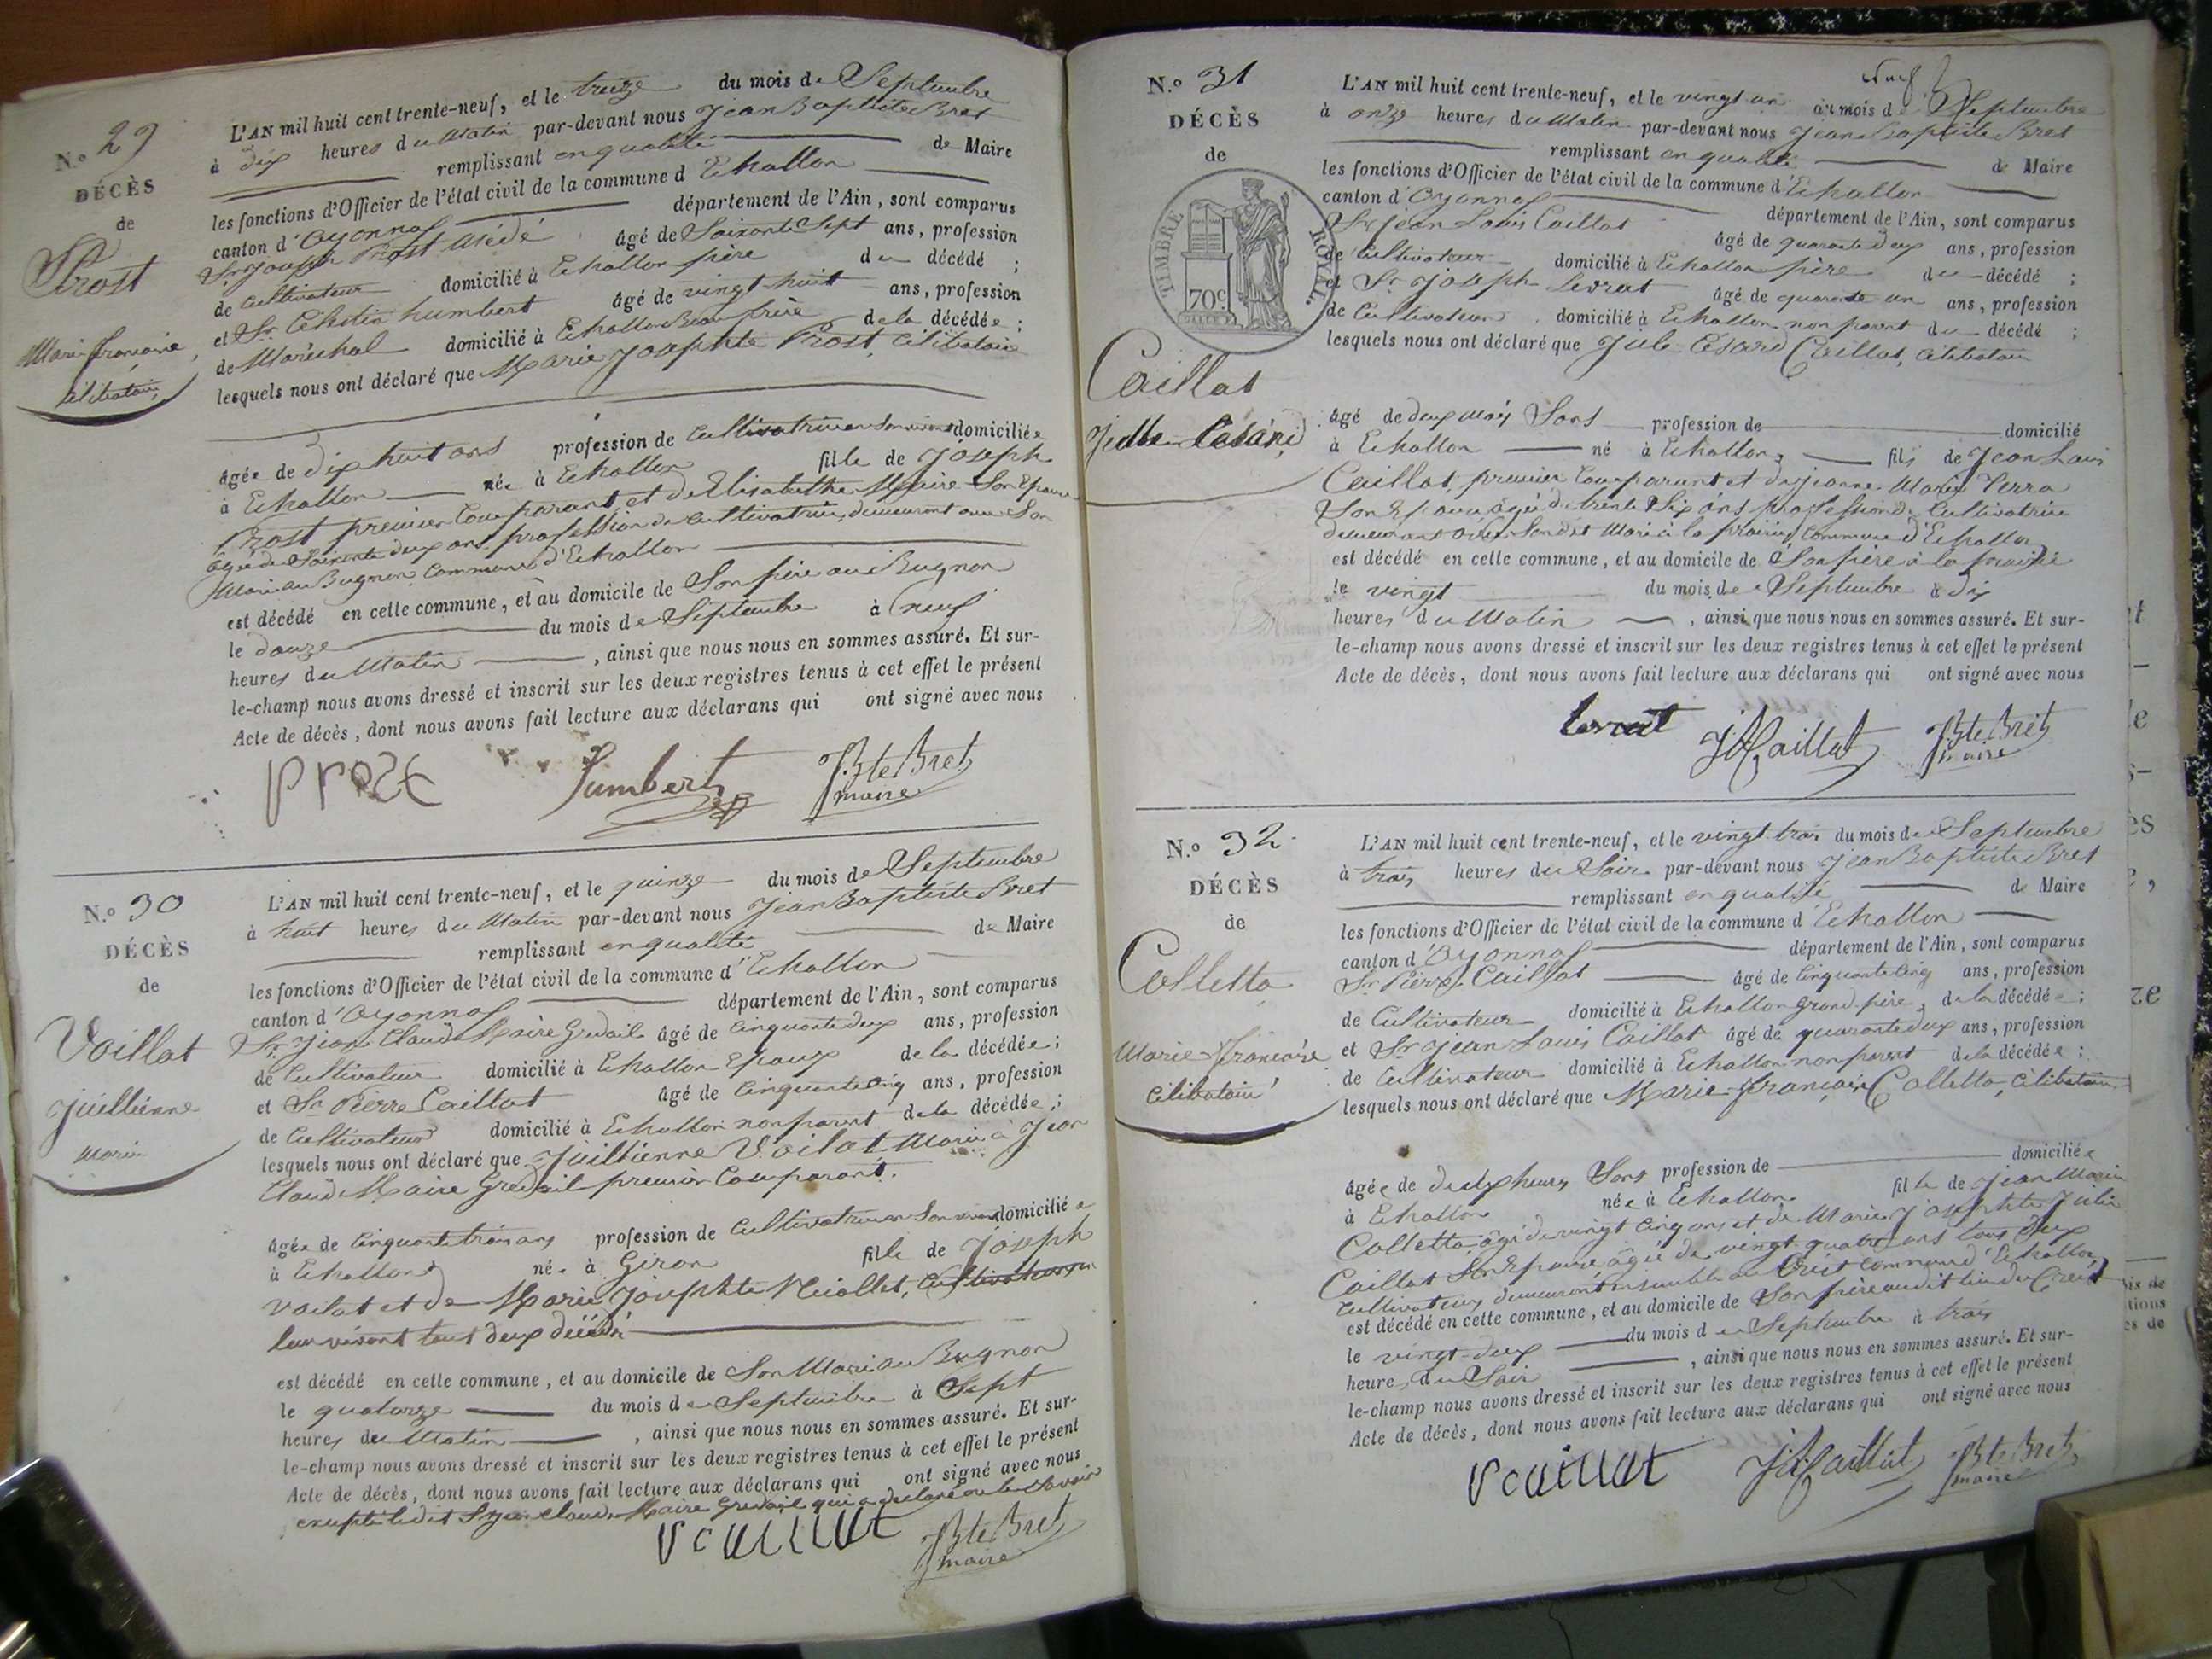 N.o 29
DÉCÈS
de
Prost
Marie françoise
célibataire
L'AN mil huit cent trente-neuf, et le treize du mois de Septembre
à dix heures du Matin par-devant nous Jean Baptiste Bret
remplissant en qualité de Maire
les fonctions d'Officier de l'état civil de la commune d'Echallon
canton d'Oyonnas département de l'Ain, sont comparus
Sr Joseph Prost âgé de Soixante Sept ans, profession
de cultivateur domicilié à Echallon père du décédé ;
et Sr Célestin humbert âgé de vingt huit ans, profession
de Maréchal domicilié à Echallon Beau frère de la décédée ;
lesquels nous ont déclaré que Marie Josephte Prost, célibataire
âgée de dix huit ans profession de Cultivatrice en Son vivant domiciliée
à Echallon née à Echallon fille de Joseph
Prost premier Comparant et de Elisabethe Maire Son Epouse
âgée de Soixante deux ans profession de cultivatrice, demeurant avec Son
Mari au Bugnon Commune d'Echallon
est décédé en cette commune, et au domicile de Son père au Bugnon
le douze du mois de Septembre à neuf
heures du Matin , ainsi que nous nous en sommes assuré. Et sur-
le-champ nous avons dressé et inscrit sur les deux registres tenus à cet effet le présent
Acte de décès, dont nous avons fait lecture aux déclarans qui ont signé avec nous
Prost humbert JBte Bret
maire
N.o 30
DÉCÈS
de
Voillat
Juillienne
Marie
L'AN mil huit cent trente-neuf, et le quinze du mois de Septembre
à huit heures du Matin par-devant nous Jean Baptiste Bret
remplissant en qualité de Maire
les fonctions d'Officier de l'état civil de la commune d'Echallon
canton d'Oyonnas département de l'Ain, sont comparus
Sr Jean Claude Maire Gredail âgé de Cinquante deux ans, profession
de Cultivateur domicilié à Echallon Epoux de la décédée ;
et Sr Pierre Caillat âgé de Cinquante cinq ans, profession
de Cultivateur domicilié à Echallon non parent de la décédée ;
lesquels nous ont déclaré que Juillienne Voilat Mariée à Jean
Claude Maire Gredail premier Comparant.
âgée de Cinquante trois ans profession de Cultivatrice en Son vivant domiciliée
à Echallon née à Giron fille de Joseph
Voilat et de Marie Josephte Niollet, Cultivateurs en
leur vivant tout deux décédé
est décédé en cette commune, et au domicile de Son Mari au Bugnon
le quatorze du mois de Septembre à Sept
heures du Matin , ainsi que nous nous en sommes assuré. Et sur-
le-champ nous avons dressé et inscrit sur les deux registres tenus à cet effet le présent
Acte de décès, dont nous avons fait lecture aux déclarans qui ont signé avec nous
excepté ledit Sr Jean Claude Maire Gredail qui a déclaré ne le Savoir
Pcaillat JBte Bret
maire
N.o 31
DÉCÈS
de
TIMBRE ROYAL
70c
Caillat
Julle Césard
L'AN mil huit cent trente-neuf, et le vingt un du mois de Septembre
à onze heures du Matin par-devant nous Jean Baptiste Bret
remplissant en qualité de Maire
les fonctions d'Officier de l'état civil de la commune d'Echallon
canton d'Oyonnas département de l'Ain, sont comparus
Sr Jean Louis Caillat âgé de quarante deux ans, profession
de Cultivateur domicilié à Echallon père du décédé ;
et Sr Joseph Levrat âgé de quarante un ans, profession
de Cultivateur domicilié à Echallon non parent du décédé ;
lesquels nous ont déclaré que Jule Césard Caillat, Célibataire
âgé de deux mois Sans profession de domicilié
à Echallon né à Echallon fils de Jean Louis
Caillat, premier Comparant et de Jeanne Marie Verra
Son Epouse, âgée de trente Six ans profession de Cultivatrice
demeurant avec Son dit Mari à la prairie Commune d'Echallon
est décédé en cette commune, et au domicile de Son père à la prairie
le vingt du mois de Septembre à dix
heures du Matin , ainsi que nous nous en sommes assuré. Et sur-
le-champ nous avons dressé et inscrit sur les deux registres tenus à cet effet le présent
Acte de décès, dont nous avons fait lecture aux déclarans qui ont signé avec nous
levrat JLCaillat JBte Bret
maire
N.o 32
DÉCÈS
de
Colletta
Marie françoise
Célibataire
L'AN mil huit cent trente-neuf, et le vingt trois du mois de Septembre
à trois heures du Soir par-devant nous Jean Baptiste Bret
remplissant en qualité de Maire
les fonctions d'Officier de l'état civil de la commune d'Echallon
canton d'Oyonnas département de l'Ain, sont comparus
Sr Pierre Caillat âgé de Cinquante Cinq ans, profession
de Cultivateur domicilié à Echallon grand père, de la décédée ;
et Sr Jean Louis Caillat âgé de quarante deux ans, profession
de Cultivateur domicilié à Echallon non parent de la décédée ;
lesquels nous ont déclaré que Marie françoise Colletta, Célibataire
âgée de heures Sans profession de domiciliée
à Echallon née à Echallon fille de Jean Marie
Colletta, âgé de vingt Cinq ans et de Marie Josephte Julie
Caillat Son Epouse âgée de vingt quatre ans tous deux
cultivateurs demeurant ensemble au Cret commune d'Echallon
est décédé en cette commune, et au domicile de Son père audit lieu du Cret
le vingt-deux du mois de Septembre à trois
heures du Soir , ainsi que nous nous en sommes assuré. Et sur-
le-champ nous avons dressé et inscrit sur les deux registres tenus à cet effet le présent
Acte de décès, dont nous avons fait lecture aux déclarans qui ont signé avec nous
Pcaillat JLCaillat JBte Bret
maire